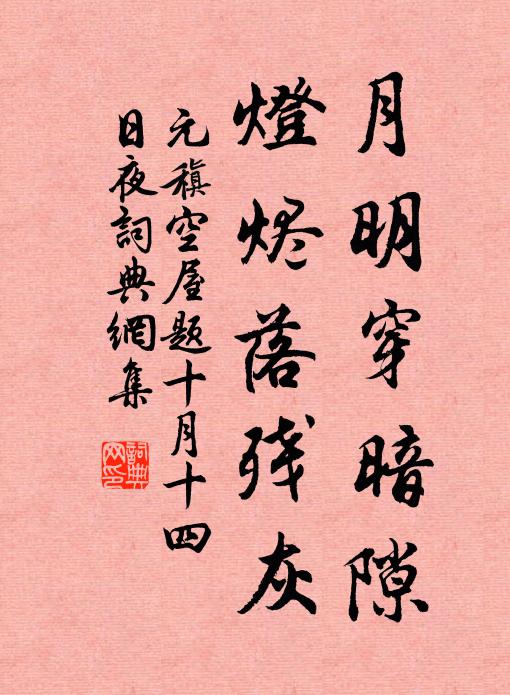 月明穿暗隙
燈烬落残灰
元稹空屋题十月十四
日夜詞典網集
詞典网印